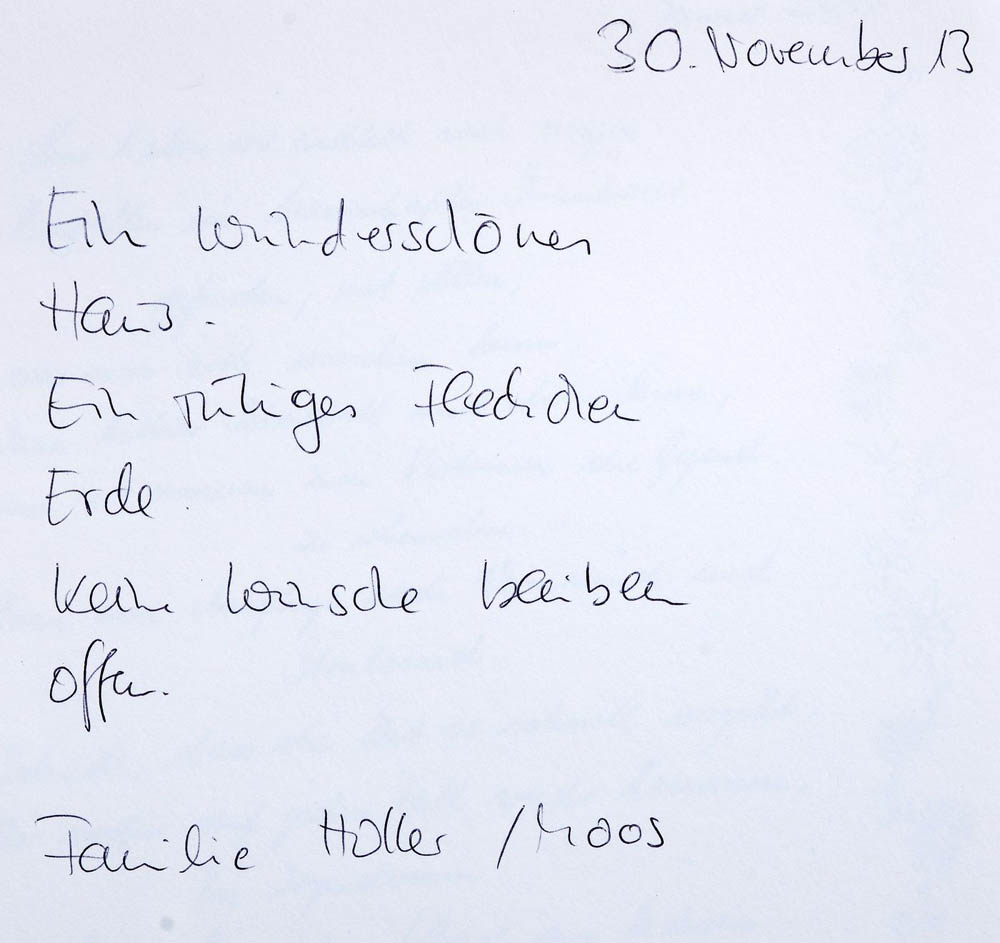 30. November 13
Ein wunderschönes
Haus.
Ein ruhiges Fleckchen
Erde.
Keine Wünsche bleiben
offen.
Familie Holler / Moos